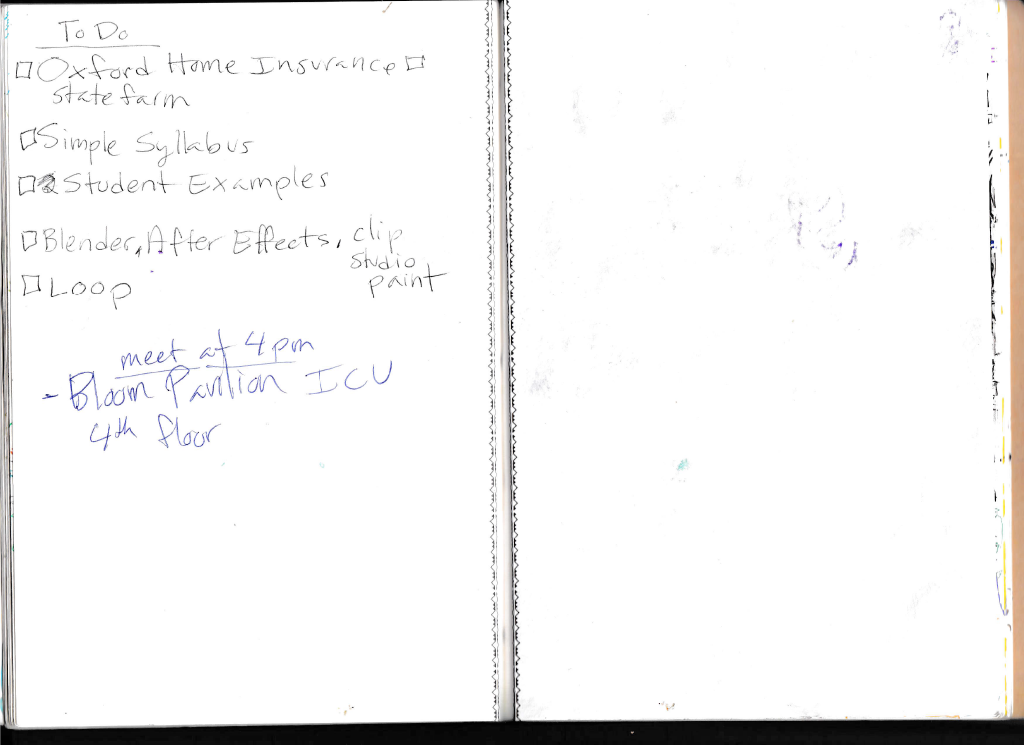 To Do
Oxford Home Insurance
statefarm
Simple Syllabus
Student Examples
Blender, After Effects, clip
studio
paint
Loop
meet at 4pm
- Bloom Pavilion ICU
4th floor